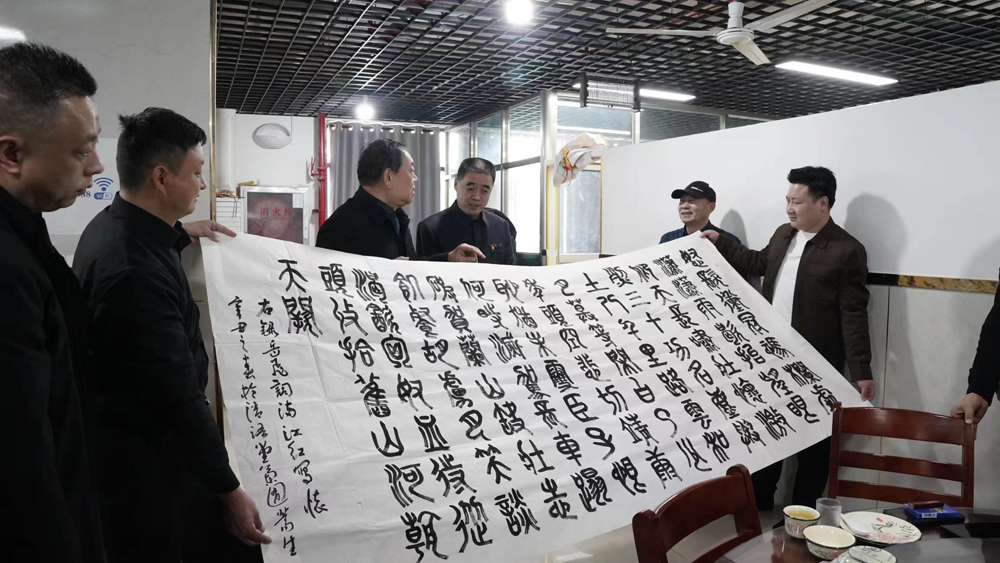 怒髮衝冠憑闌處
瀟瀟雨歇抬望眼
仰天長嘯壯懷激
烈三十功名塵與
土八千里路雲和
月莫等閒白了少
年頭空悲切靖康
恥猶未雪臣子恨
何時滅駕長車踏
破賀蘭山缺壯志
飢餐胡虜肉笑談
渴飲匈奴血待從
頭收拾舊山河朝
天闕
右錄岳飛詞滿江紅寫懷
辛丑之春於清語堂
消火